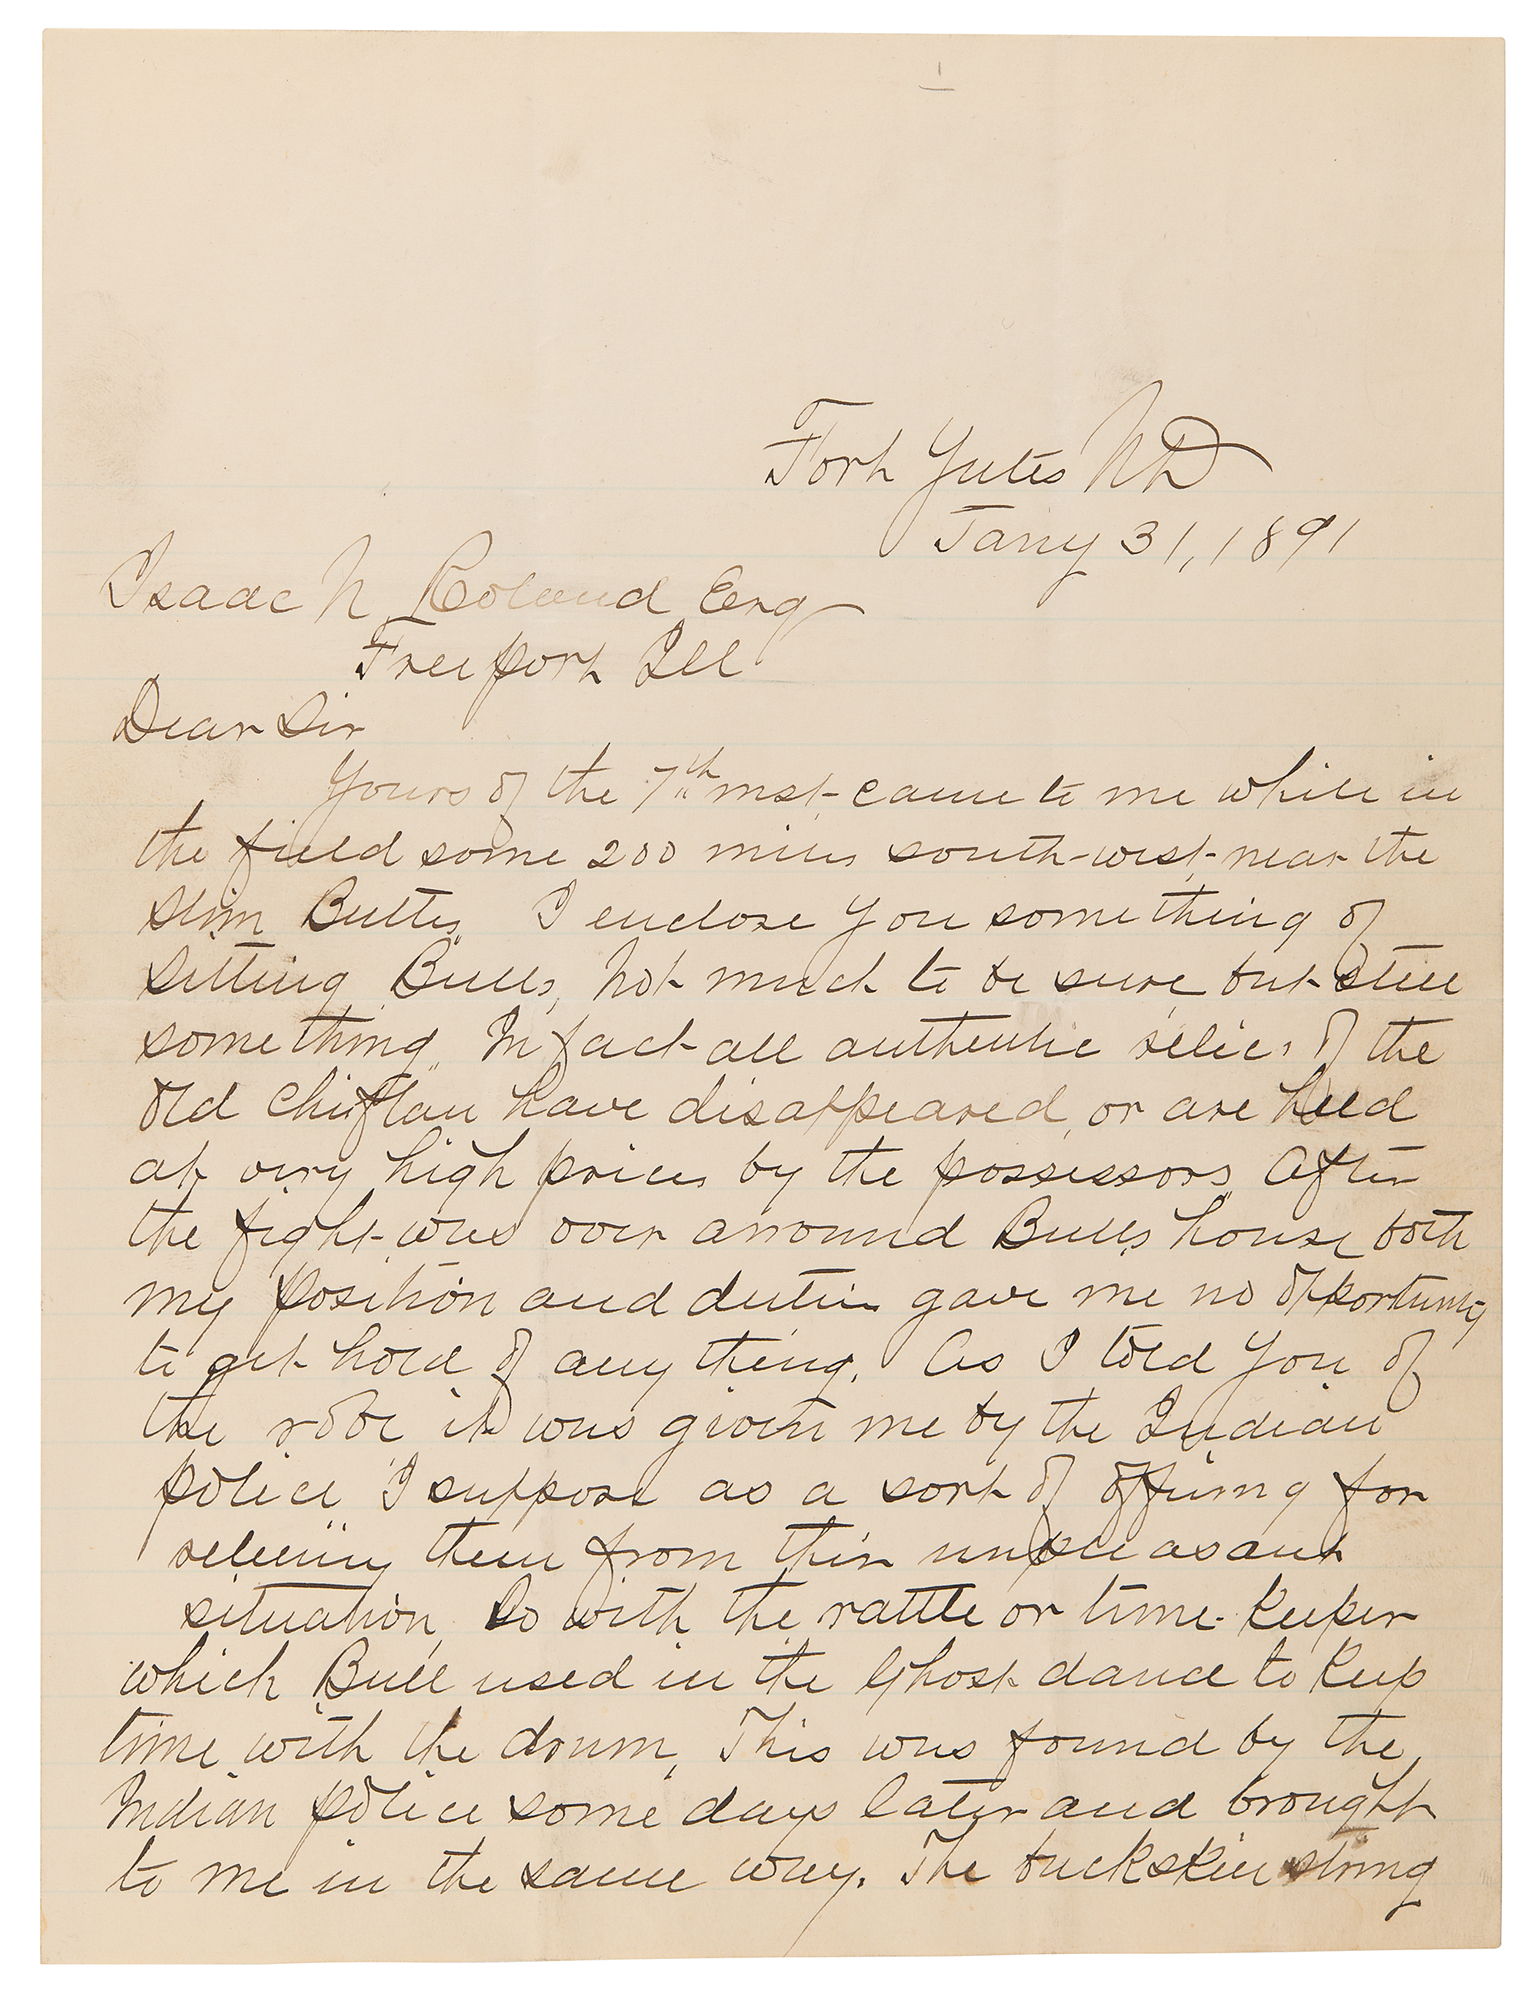 1
Fort Yates ND
Jany 31, 1891
Isaac N Roland Esq
Freeport Ill
Dear Sir
Yours of the 7th inst. came to me while in
the field some 200 miles south-west, near the
Slim Buttes. I enclose you something of
Sitting Bulls, not much to be sure, but still
something. In fact all authentic relics of the
old chieftan have disappeared, or are held
at very high prices by the possessors. After
the fight was over arround Bulls house both
my position and duties gave me no opportunity
to get hold of any thing. As I told you of
the robe it was given me by the Indian
police I suppose as a sort of offering for
releiving them from their unpleasant
situation, So with the rattle or time-keeper
which Bull used in the Ghost dance to keep
time with the drum, This was found by the
Indian police some days later and brought
to me in the same way. The buckskin string